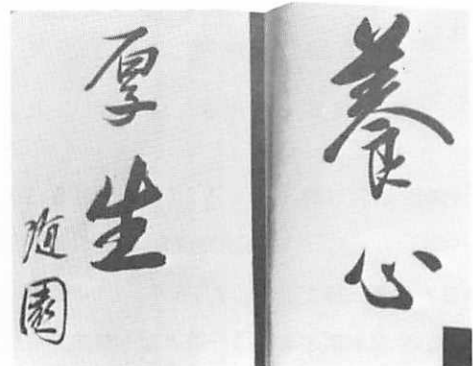 養心
厚生
随園